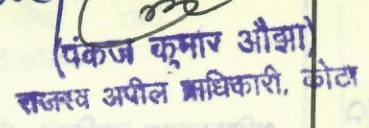 (पंकज कुमार औझा)
राजस्व अपील प्राधिकारी, कोटा